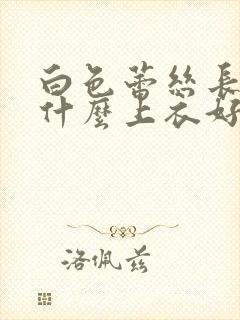 白色蕾絲長
什麼上衣好
洛佩茲